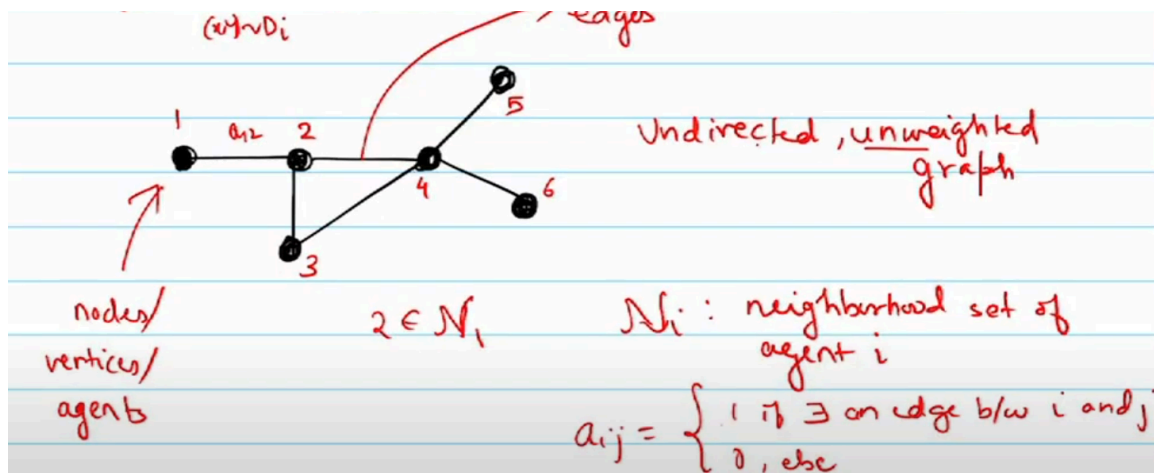 (x,y)~Di
edges
1
a12
2
5
4
6
3
Undirected, unweighted
graph
nodes/
vertices/
agents
2 ∈ N1
Ni : neighborhood set of
agent i
aij = { 1 if ∃ an edge b/w i and j
0, else